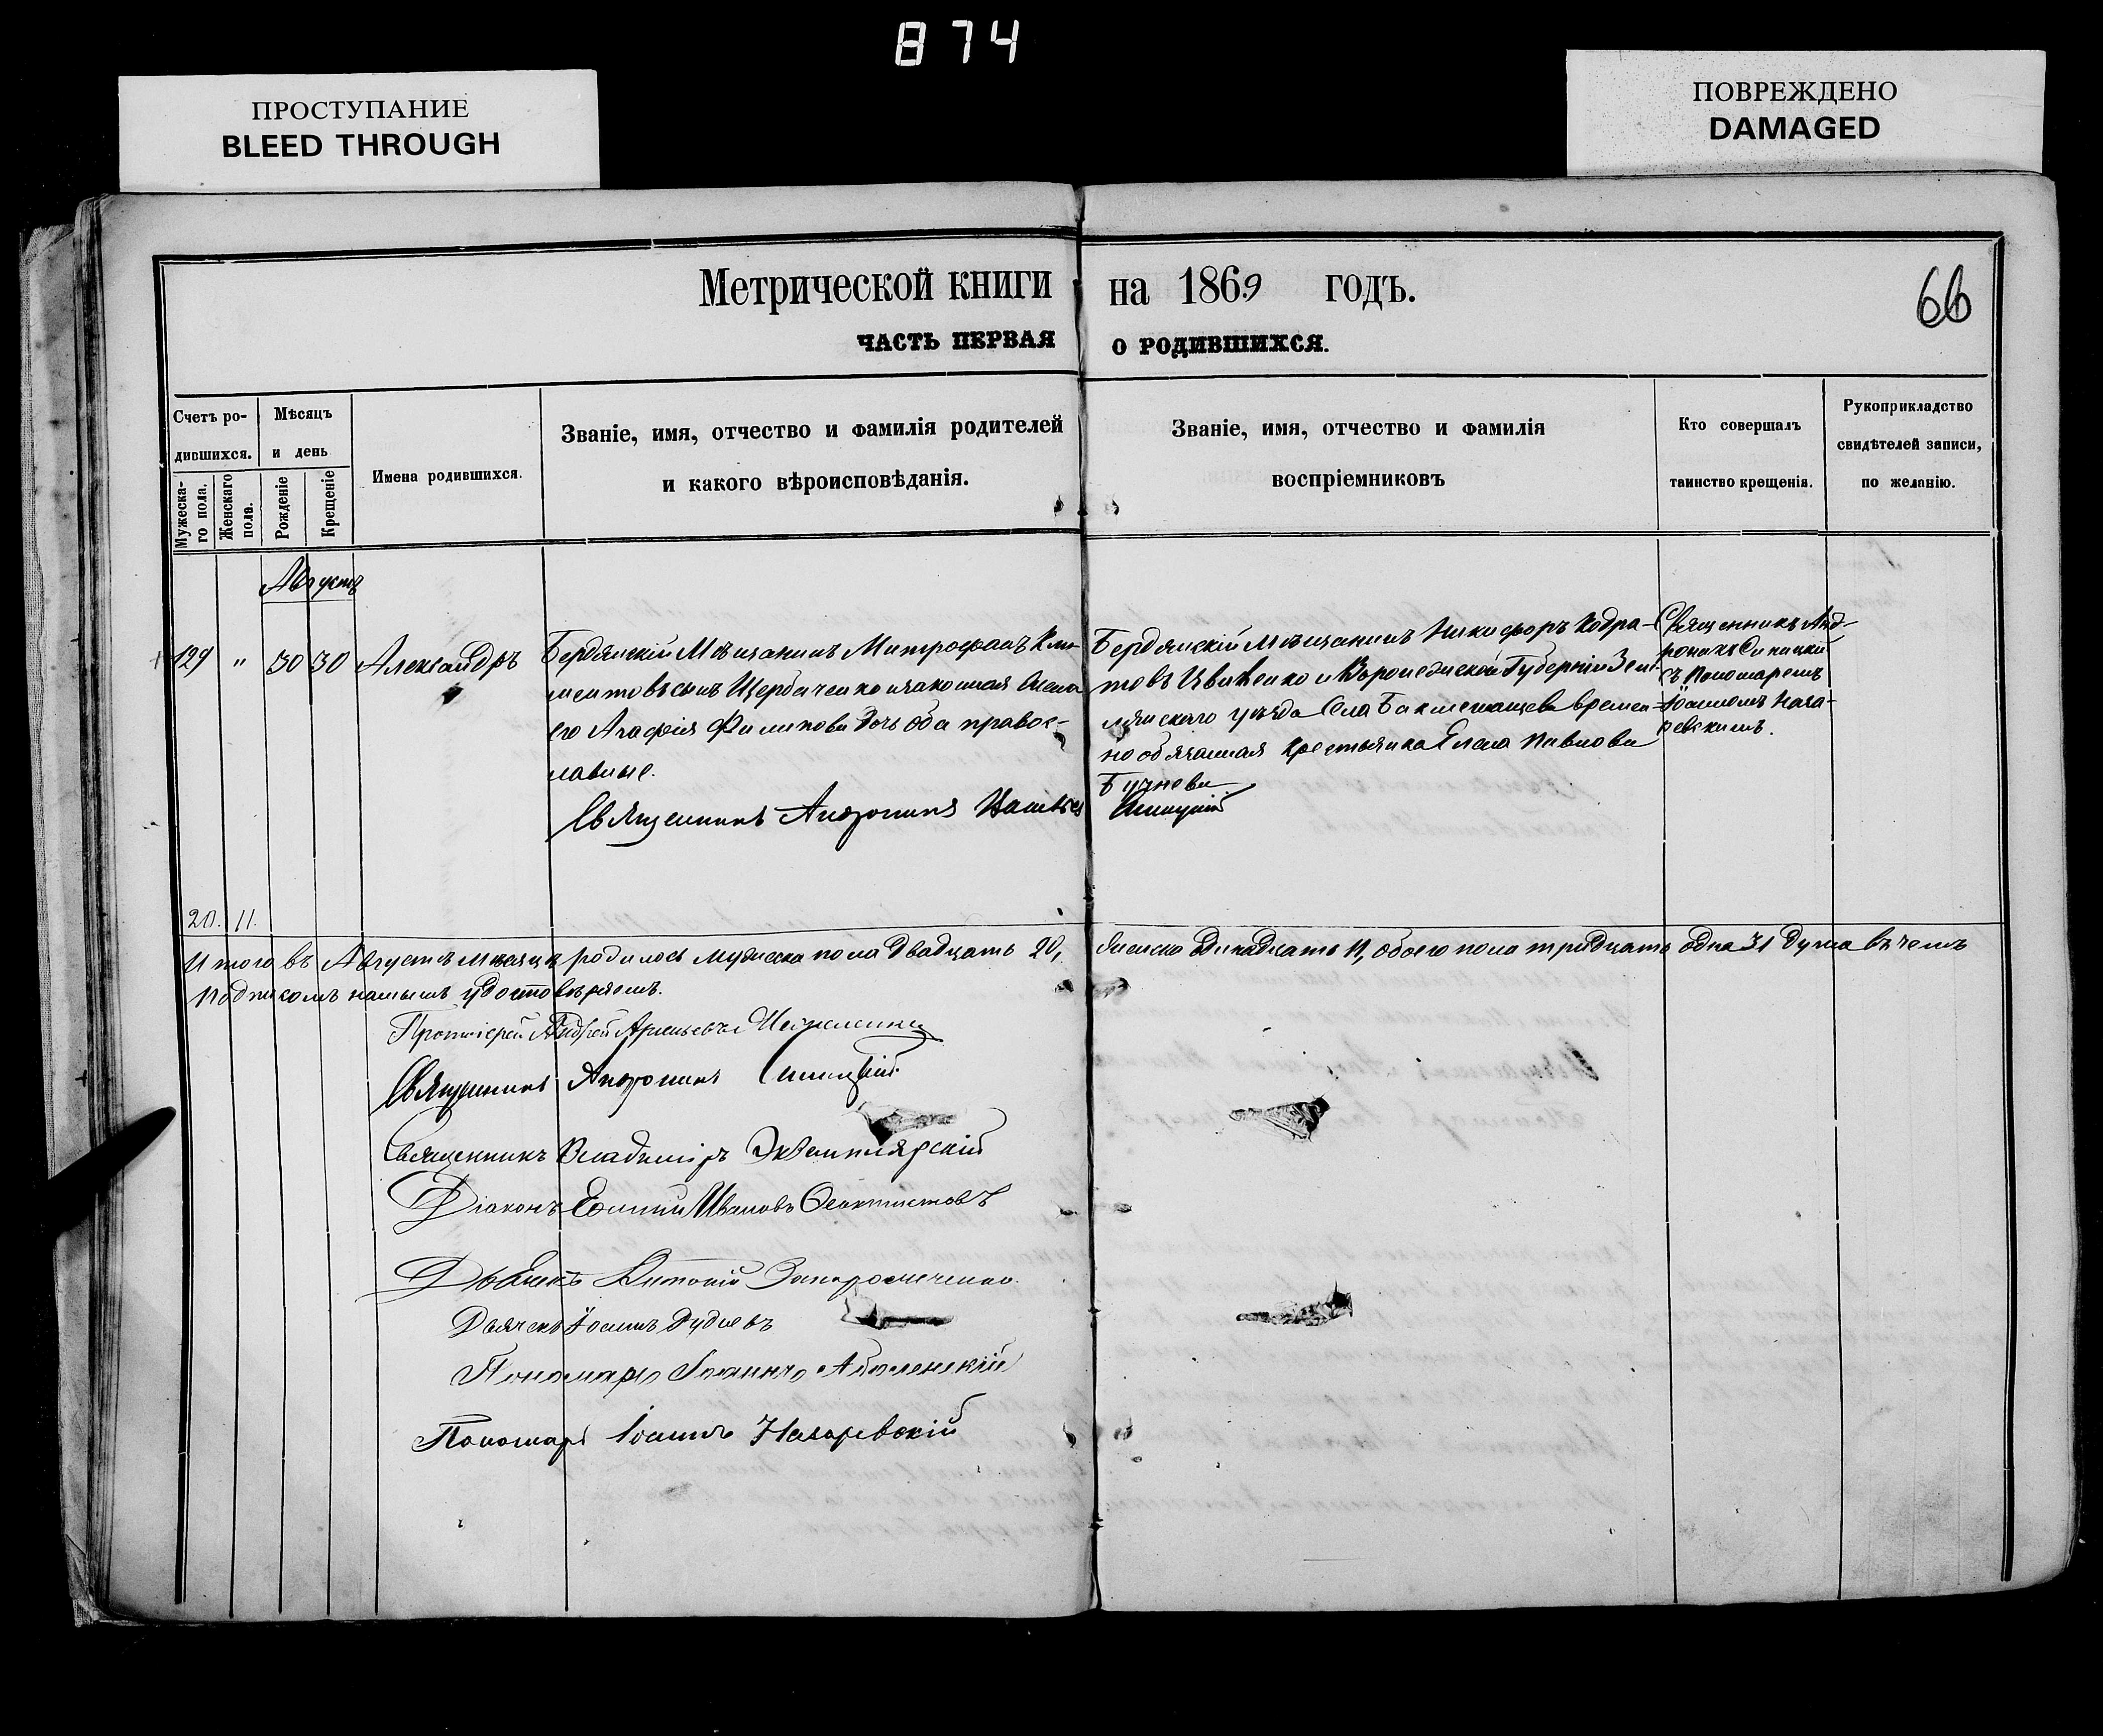 874
ПРОСТУПАНИЕ
BLEED THROUGH
ПОВРЕЖДЕНО
DAMAGED
Метрической книги на 1869 годъ.
66
ЧАСТЬ ПЕРВАЯ О РОДИВШИХСЯ.
Счетъ ро-
дившихся.
Мужеска-
го пола.
Женскаго
пола.
Мѣсяцъ
и день
Рожденіе
Крещеніе
Имена родившихся.
Званіе, имя, отчество и фамилія родителей
и какого вѣроисповѣданія.
Званіе, имя, отчество и фамилія
воспріемниковъ
Кто совершалъ
таинство крещенія.
Рукоприкладство
свидѣтелей записи,
по желанію.
Августъ
129 " 30 30 Александръ
Бердянскій Мѣщанинъ Митрофанъ Кли-
ментовъ сынъ Щербаченко и законная жена
его Агафія Филипова дочь оба правос-
лавные.
Священникъ Андроникъ
Бердянскій Мѣщанинъ Никифоръ Кодра-
товъ Цвиженко и Воронежской Губерніи Зем-
лянскаго уѣзда Села времен-
но обязанная крестьянка Елена Павлова
Синицкій
Священникъ Анд-
роникъ Синицкі-
съ Пономаремъ
Іоанномъ Наза-
ревскимъ.
20. 11.
Итого въ Августѣ мѣсяцѣ родилось мужеска пола двадцать 20, женска одинадцать 11, обоего пола тридцать одна 31 душа въ чемъ
подписомъ нашимъ удостовѣряемъ.
Протоіерей Андрей Арсеньевъ
Священникъ Андроникъ Синицкій
Священникъ Владиміръ Экземплярскій
Діаконъ Ефимій Ивановъ Феоктистовъ
Дьячекъ Антоній
Дьячекъ Іоаннъ Дудневъ
Пономарь Іоаннъ
Пономарь Іоаннъ Назаревскій